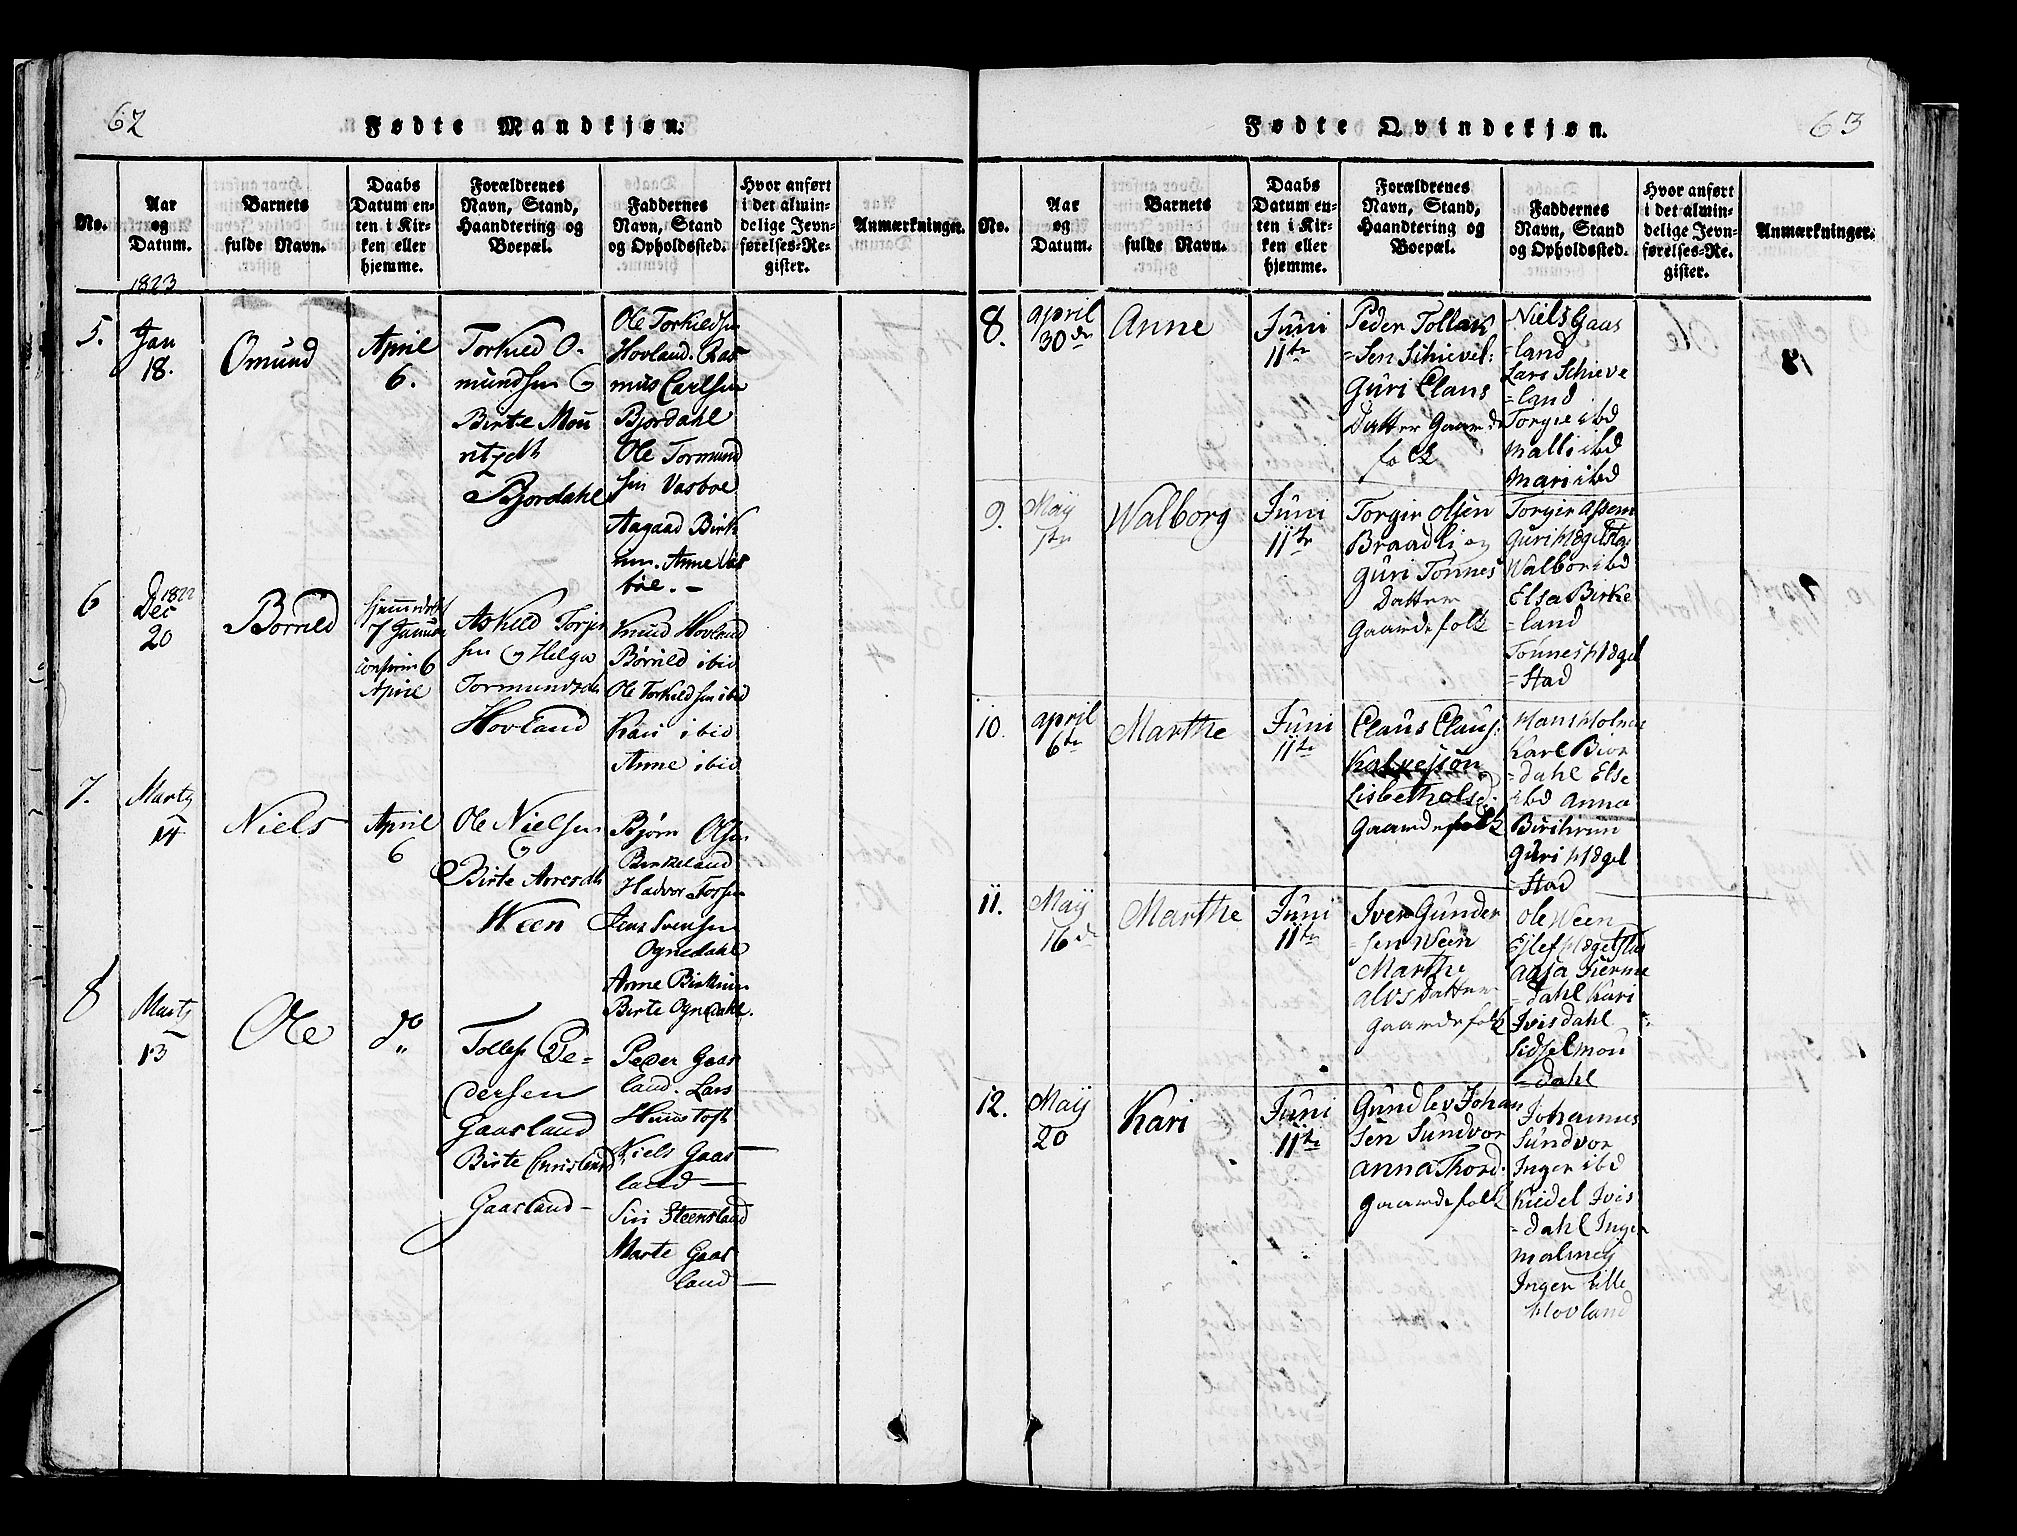 62
Fødte Mandkjøn.
No.
Aar
og
Datum.
Barnets
fulde Navn.
Daabs
Datum en-
ten i Kir-
ken eller
hjemme.
Forældrenes
Navn, Stand,
Haandtering og
Boepæl.
Faddernes
Navn, Stand
og Opholdssted.
Hvor anført
i det almin-
delige Jevn-
førelses-Re-
gister.
Anmærkninger.
1823
5.
Jan
18.
Omund
April
6.
Torkild O-
mundsen
Birte Mou
ritzdtt
Bjordahl
Ole Torkildsen
Hovland. Ras
mus Carlsen
Bjordahl
Ole Tormund
sen Vasboe
Aagaad Birk
rem. Anne Vas
böe. -
6
1822
Dec
20
Börrild
7 Januar
6
April
Askild Torjer
sen og Helga
Tormundsdtr
Hovland
Knud Hovland
Börrild ibid
Ole Torkildsen ibid
Kari ibid
Anne ibid
7.
Marty
14
Niels
April
6
Ole Nielsen
Birte Arnesdtr
Ween
Bjørn Olsen
Birkeland
Hadvor Torsen
Jens Svensen
Ognedahl
Anne Birkrem
Birte Ognedahl.
8
Marty
13
Ole
do
Tollef Pe-
dersen
Gaasland
Birte Christensd
Gaasland
Peder Gaas
land. Lars
Hamstoft
Niels Gaas
land
Siri Steensland
Marte Gaas
land
63
Fødte Qvindekjøn.
No.
Aar
og
Datum.
Barnets
fulde Navn.
Daabs
Datum en-
ten i Kir-
ken eller
hjemme.
Forældrenes
Navn, Stand,
Haandtering og
Boepæl.
Faddernes
Navn, Stand
og Opholdssted.
Hvor anført
i det almin-
delige Jevn-
førelses-Re-
gister.
Anmærkninger.
8.
april
30de
Anne
Juni
11te
Peder Tollak
=sen Schievel:
Guri Claus
Datter Gaarde
folk
Niels Gaas
=land
Lars Schieve
=land
Torgie ibd
Malli ibd
Mari ibd
9.
Maÿ
1te
Walborg
Juni
11te
Torgir Olsen
Braadli og
Guri Tönnes
Datter
Gaardefolk
Torgir Assem
Guri Hægelsta
Walbor ibd
Elsa Birke
=land
Tönnes Hægel
=Stad
10.
april
6te
Marthe
Juni
11te
Claus Claus:
Lisbeth Olsd:
Gaardefolk
Hans Holmen
Karl Bior
=dahl Else
ibd Anna
Birchrem
Guri Hægel
=Stad
11.
Maÿ
16de
Marthe
Juni
11te
Iver Gunder
=sen Ween
Marthe
Alvsdatter
Gaardefolk
Ole Ween
Ejlef Hægelsta
Aasa Tierme
=dahl Kari
Ivisdahl
Sidsel Mou
=dahl
12.
Maÿ
20
Kari
Juni
11te
Gundlev Johan
sen Sundvor
Anna Thord.
Gaardefolk
Johannes
Sundvor
Inger ibd
Kiedel Ivis
=dahl Inger
Malmeÿ
Inger lille
Hovland